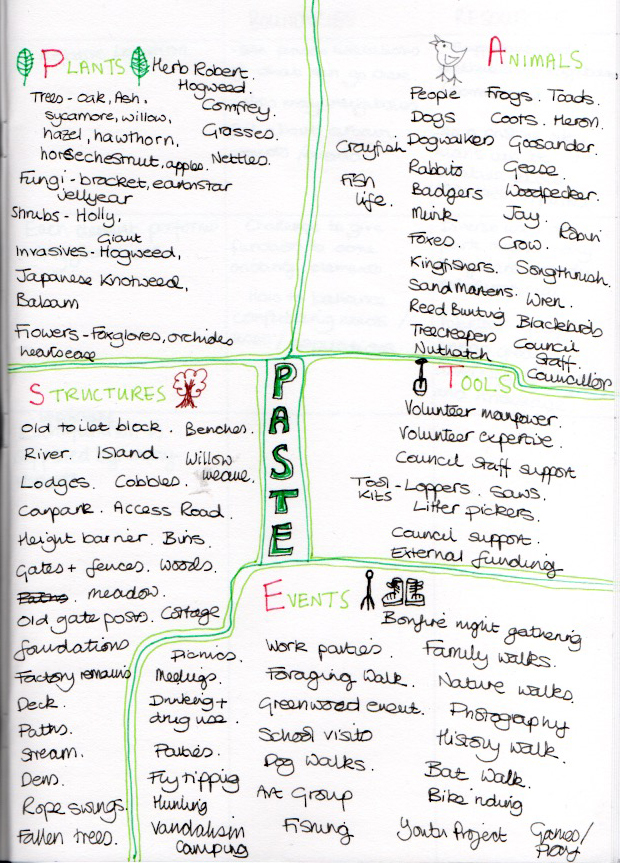 PLANTS
Herb Robert.
Hogweed.
Trees - oak, Ash,
Comfrey.
sycamore, willow,
Grasses.
hazel, hawthorn,
horsechestnut, apples.
Nettles.
Fungi - bracket, earthstar
jellyear
Shrubs - Holly,
Giant
Invasives - Hogweed,
Japanese Knotweed,
Balsam
Flowers - Foxgloves, orchides
heartsease
ANIMALS
People Frogs. Toads.
Dogs Coots. Heron.
Crayfish Dogwalkers Goosander.
Rabbits Geese.
Fish
life.
Badgers Woodpecker.
Mink Jay.
Robin
Foxes. Crow.
Kingfishers. Songthrush.
Sand Martens. Wren.
Reed Bunting Blackbirds
Treecreepers Council
Staff.
Nuthatch
Councillors
PASTE
STRUCTURES
Old toilet block. Benches.
River. Island. Willow
weave.
Lodges. Cobbles.
Carpark. Access Road.
Height barrier. Bins.
Gates + fences. Woods.
Paths. meadow.
Old gate posts. Cottage
foundations
Factory remains
Deck.
Paths.
Stream.
Dens.
Rope swings.
Fallen trees.
TOOLS
Volunteer manpower.
Volunteer expertive.
Council Staff support
Tool
Kits - Loppers. Saws.
Litter pickers.
Council support.
External funding
EVENTS
Bonfire night gathering
Picnics.
Meetings.
Drinking +
drug use.
Parties.
Fly tipping
Hunting
Vandalism
Camping
Work parties.
Foraging Walk.
Greenwood event.
School visits
Dog Walks.
Art Group
Fishing
Family walks.
Nature walks.
Photography
History walk.
Bat Walk.
Bike riding
Youth Project
Games/
Play